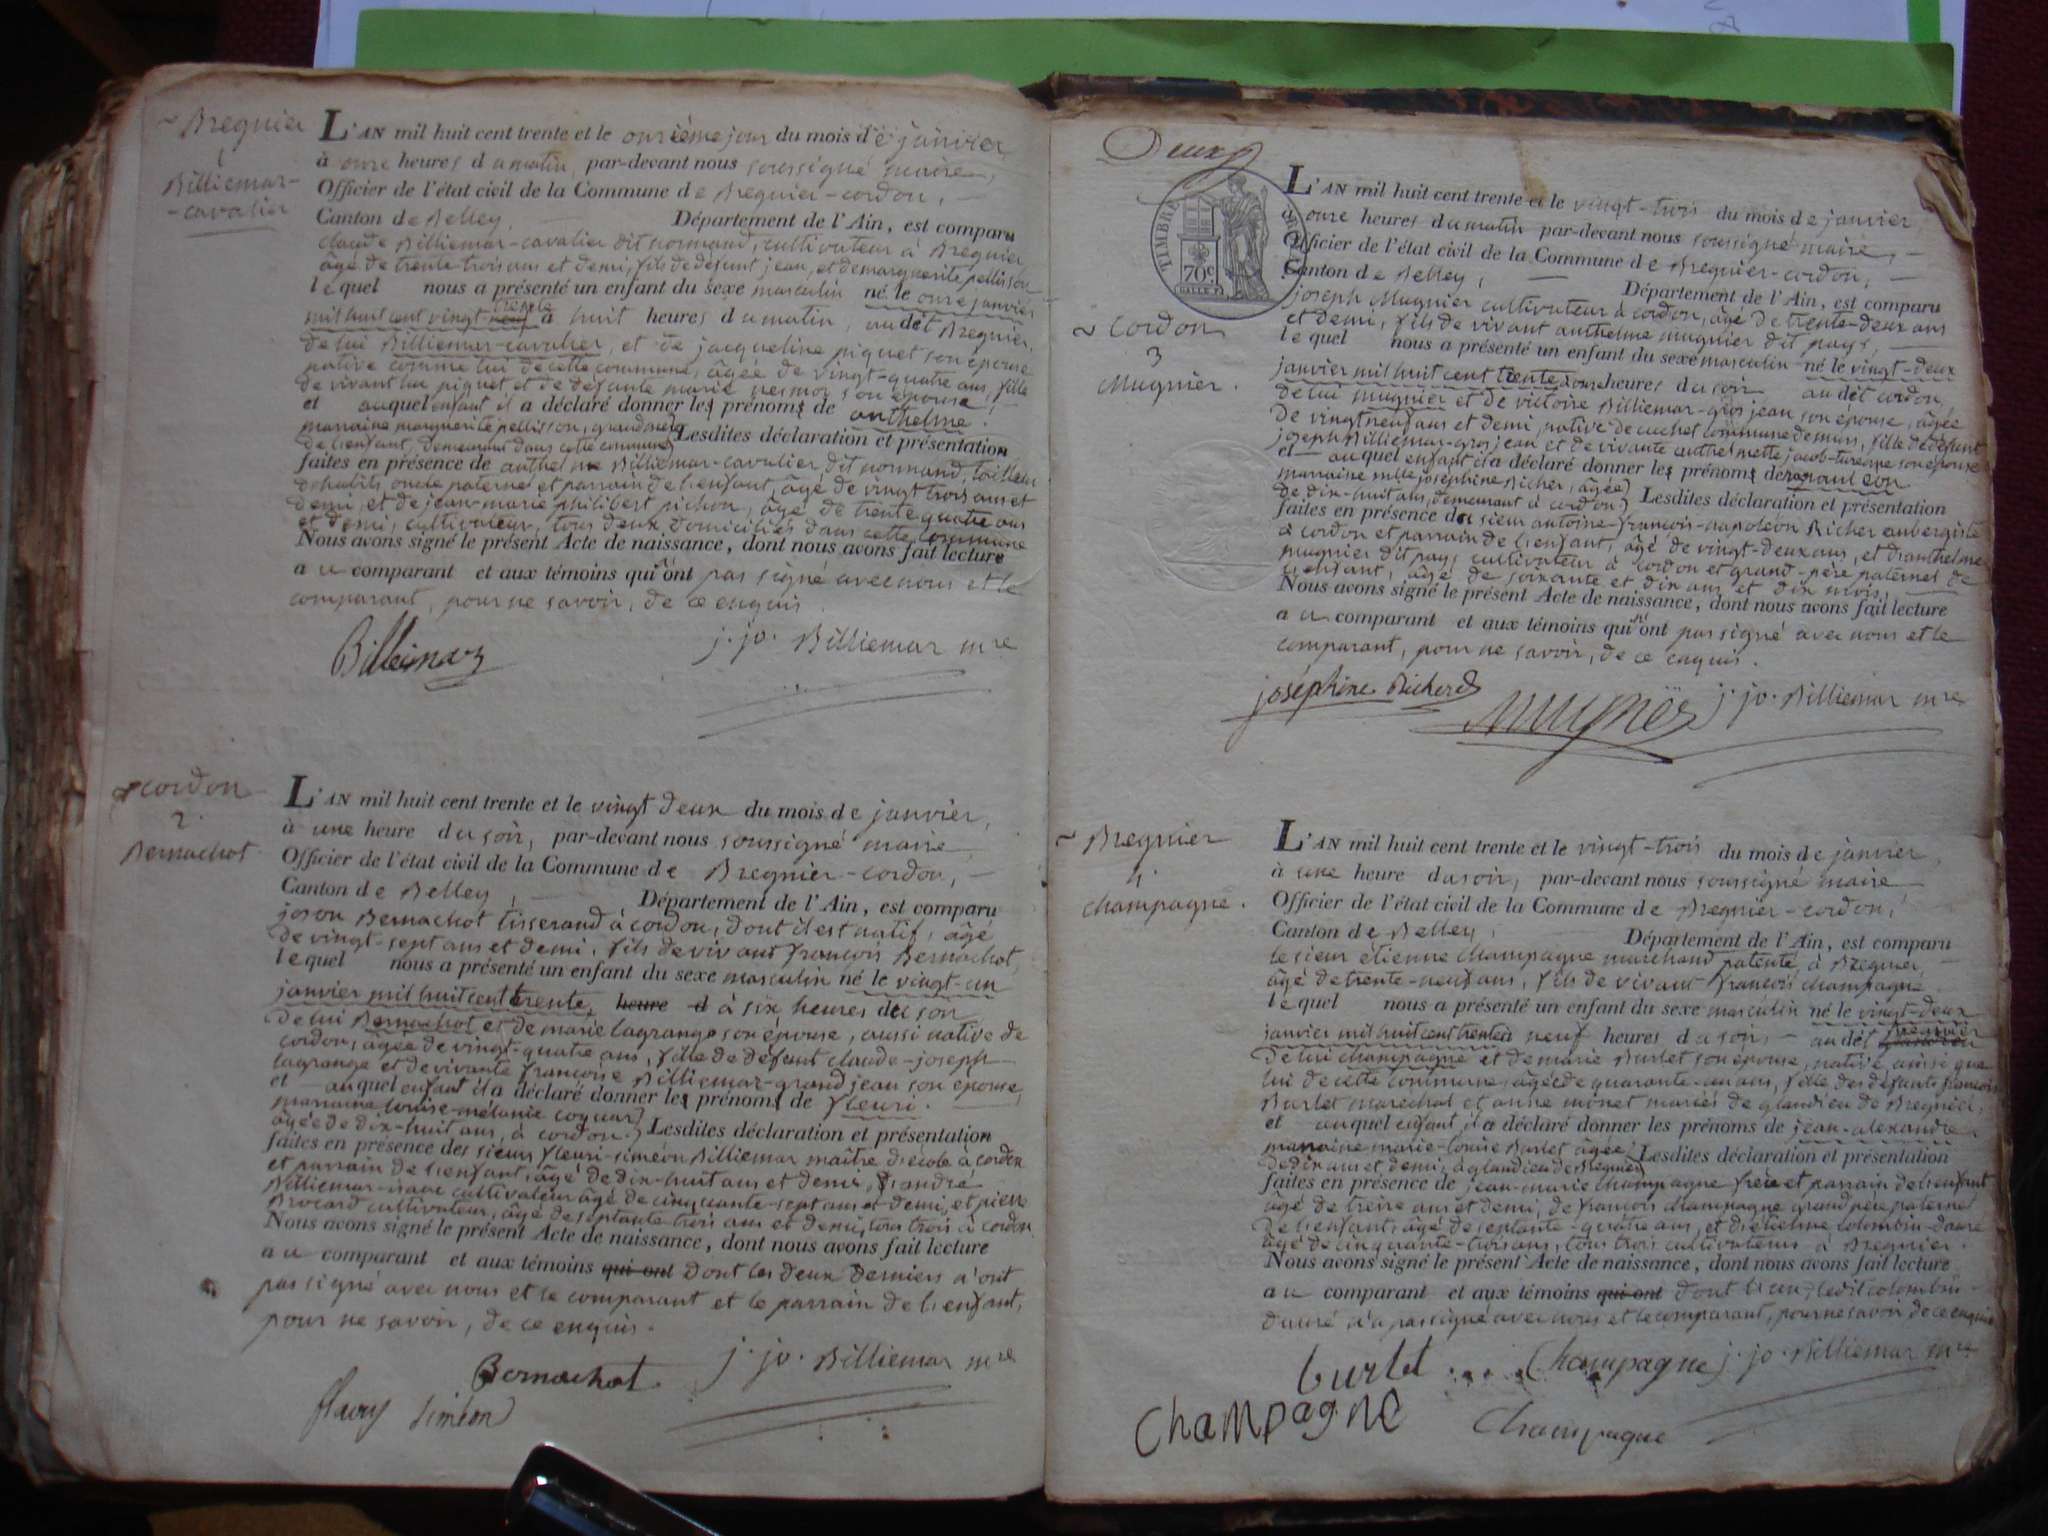 ~ Bregnier
1
Billiemaz-
-cavalier
L'AN mil huit cent trente et le onzième jour du mois de janvier
à onze heures du matin, par-devant nous soussigné maire,
Officier de l'état civil de la Commune de Bregnier-cordon,
Canton de Belley, Département de l'Ain, est comparu
claude Billiemaz-cavalier dit normand, cultivateur à Bregnier
âgé de trente trois ans et demi, fils de défunt jean, et de marguerite pellisson
lequel nous a présenté un enfant du sexe masculin né le onze janvier
mil huit cent vingt trente à huit heures du matin, audit Bregnier,
de lui Billiemaz-cavalier, et de jacqueline piquet son épouse
native comme lui de cette commune, âgée de vingt-quatre ans, fille
de vivant luc piquet et de défunte marie son épouse,
et auquel enfant il a déclaré donner les prénoms de anthelme.
marraine marguerite pellisson, grand mère
de l'enfant, demeurant dans cette commune) Lesdites déclaration et présentation
faites en présence de anthelme Billiemaz-cavalier dit normand, tailleur
d'habits, oncle paterne et parrain de l'enfant, âgé de vingt trois ans et
demi, et de jean-marie philibert pichon, âgé de trente quatre ans
et demi, cultivateur, tous deux domiciliés dans cette commune
Nous avons signé le présent Acte de naissance, dont nous avons fait lecture
au comparant et aux témoins qui n'ont pas signé avec nous et le
comparant, pour ne savoir, de ce enquis.
Billiemaz j. jo. Billiemaz mre
cordon
2.
Bernachot
L'AN mil huit cent trente et le vingt deux du mois de janvier,
à une heure du soir, par-devant nous soussigné maire
Officier de l'état civil de la Commune de Bregnier-cordon,
Canton de Belley, Département de l'Ain, est comparu
Bernachot tisserand à cordon, dont il est natif, âgé
de vingt-sept ans et demi, fils de vivant françois Bernachot,
lequel nous a présenté un enfant du sexe masculin né le vingt-un
janvier mil huit cent trente, heure d à six heures du soir
de lui Bernachot et de marie lagrange son épouse, aussi native de
cordon, âgée de vingt-quatre ans, fille de défunt claude-joseph
lagrange et de vivante françoise Billiemaz-grand jean son épouse,
et auquel enfant il a déclaré donner les prénoms de fleuri.
marraine louise-mélanie coquaz)
âgée de dix-huit ans, à cordon.) Lesdites déclaration et présentation
faites en présence des sieurs fleuri-siméon Billiemaz maître d'école à cordon
et parrain de l'enfant, âgé de dix-huit ans et demi, d'andré
Billiemaz-isaac cultivateur âgé de cinquante-sept ans et demi, et pierre
Brocard cultivateur, âgé de septante trois ans et demi, tous trois à cordon.
Nous avons signé le présent Acte de naissance, dont nous avons fait lecture
au comparant et aux témoins qui ont dont les deux derniers n'ont
pas signé avec nous et le comparant et le parrain de l'enfant,
pour ne savoir, de ce enquis.
Bernachot j. jo. Billiemaz mre
fleury siméon
Deux
TIMBRE ROYAL
70c
~ cordon
3
Mugnier.
L'AN mil huit cent trente et le vingt-trois du mois de janvier
à onze heures du matin par-devant nous soussigné maire,
Officier de l'état civil de la Commune de Bregnier-cordon,
Canton de Belley, Département de l'Ain, est comparu
joseph Mugnier cultivateur à cordon, âgé de trente-deux ans
et demi, fils de vivant anthelme mugnier dit pays,
lequel nous a présenté un enfant du sexe masculin né le vingt-deux
janvier mil huit cent trente, onze heures du soir audit cordon,
de lui mugnier et de victoire Billiemaz-gros jean son épouse, âgée
de vingt neuf ans et demi, native de cuchet commune de murs, fille de défunt
joseph Billiemaz-gros jean et de vivante anthelmette jacob-turenne son épouse
et auquel enfant il a déclaré donner les prénoms de napoléon
marraine mlle joséphine Richer, âgée)
de dix-huit ans, demeurant à cordon) Lesdites déclaration et présentation
faites en présence du sieur antoine-françois-napoléon Richer aubergiste
à cordon et parrain de l'enfant, âgé de vingt-deux ans, et d'anthelme
mugnier dit pays cultivateur à cordon et grand-père paternel de
l'enfant, âgé de soixante et dix ans et dix mois,
Nous avons signé le présent Acte de naissance, dont nous avons fait lecture
au comparant et aux témoins qui n'ont pas signé avec nous et le
comparant, pour ne savoir, de ce enquis.
joséphine Richerd Mugnier j. jo. Billiemaz mre
~ Bregnier
4.
champagne.
L'AN mil huit cent trente et le vingt-trois du mois de janvier,
à une heure du soir, par-devant nous soussigné maire
Officier de l'état civil de la Commune de Bregnier-cordon,
Canton de Belley, Département de l'Ain, est comparu
le sieur étienne champagne marchand patenté à Bregnier,
âgé de trente-neuf ans, fils de vivant françois champagne
lequel nous a présenté un enfant du sexe masculin né le vingt-deux
janvier mil huit cent trente à neuf heures du soir, audit Bregnier
de lui champagne et de marie Burlet son épouse, native ainsi que
lui de cette commune, âgée de quarante-un ans, fille des défunts françois
Burlet marechal et anne monet mariés de glandieu de Bregnier,
et auquel enfant il a déclaré donner les prénoms de jean-alexandre
marraine marie-louise Burlet âgée)
de dix ans et demi, à glandieu de Bregnier) Lesdites déclaration et présentation
faites en présence de jean-marie champagne frère et parrain de l'enfant
âgé de treize ans et demi, de françois champagne grand père paternel
de l'enfant, âgé de septante-quatre ans, et d'étienne colombin-dauré
âgé de cinquante-trois ans, tous trois cultivateurs à Bregnier.
Nous avons signé le présent Acte de naissance, dont nous avons fait lecture
au comparant et aux témoins qui ont dont l'un, ledit colombin-
dauré n'a pas signé avec nous et le comparant, pour ne savoir de ce enquis
burlet Champagne j. jo. Billiemaz mre
Champagne Champagne